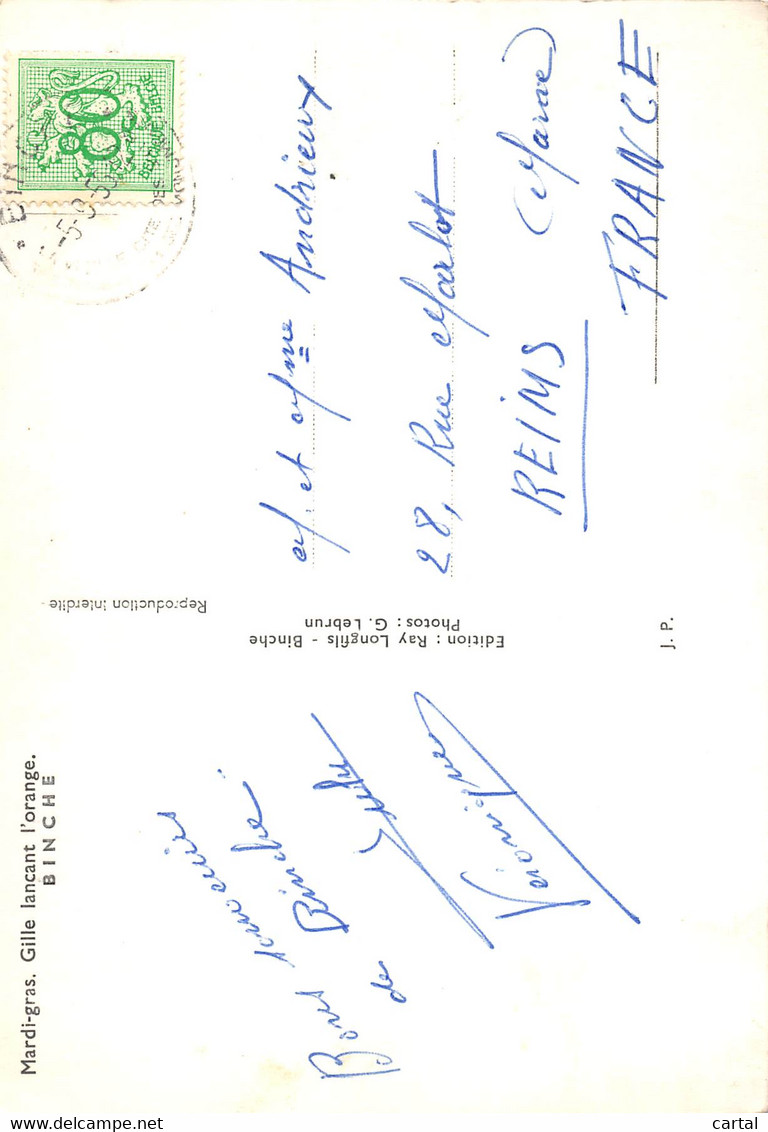 Mardi-gras. Gille lancant l'orange.
BINCHE
Bons souvenirs
de Binche.
Véronique
Edition : Ray Longfils - Binche
Photos : G. Lebrun
Reproduction interdite -
J. P.
80
BELGIQUE-BELGIE
5-9-5
M. et Mme Andrieux
28, Rue Marlot
REIMS (Marne)
FRANCE
cartal